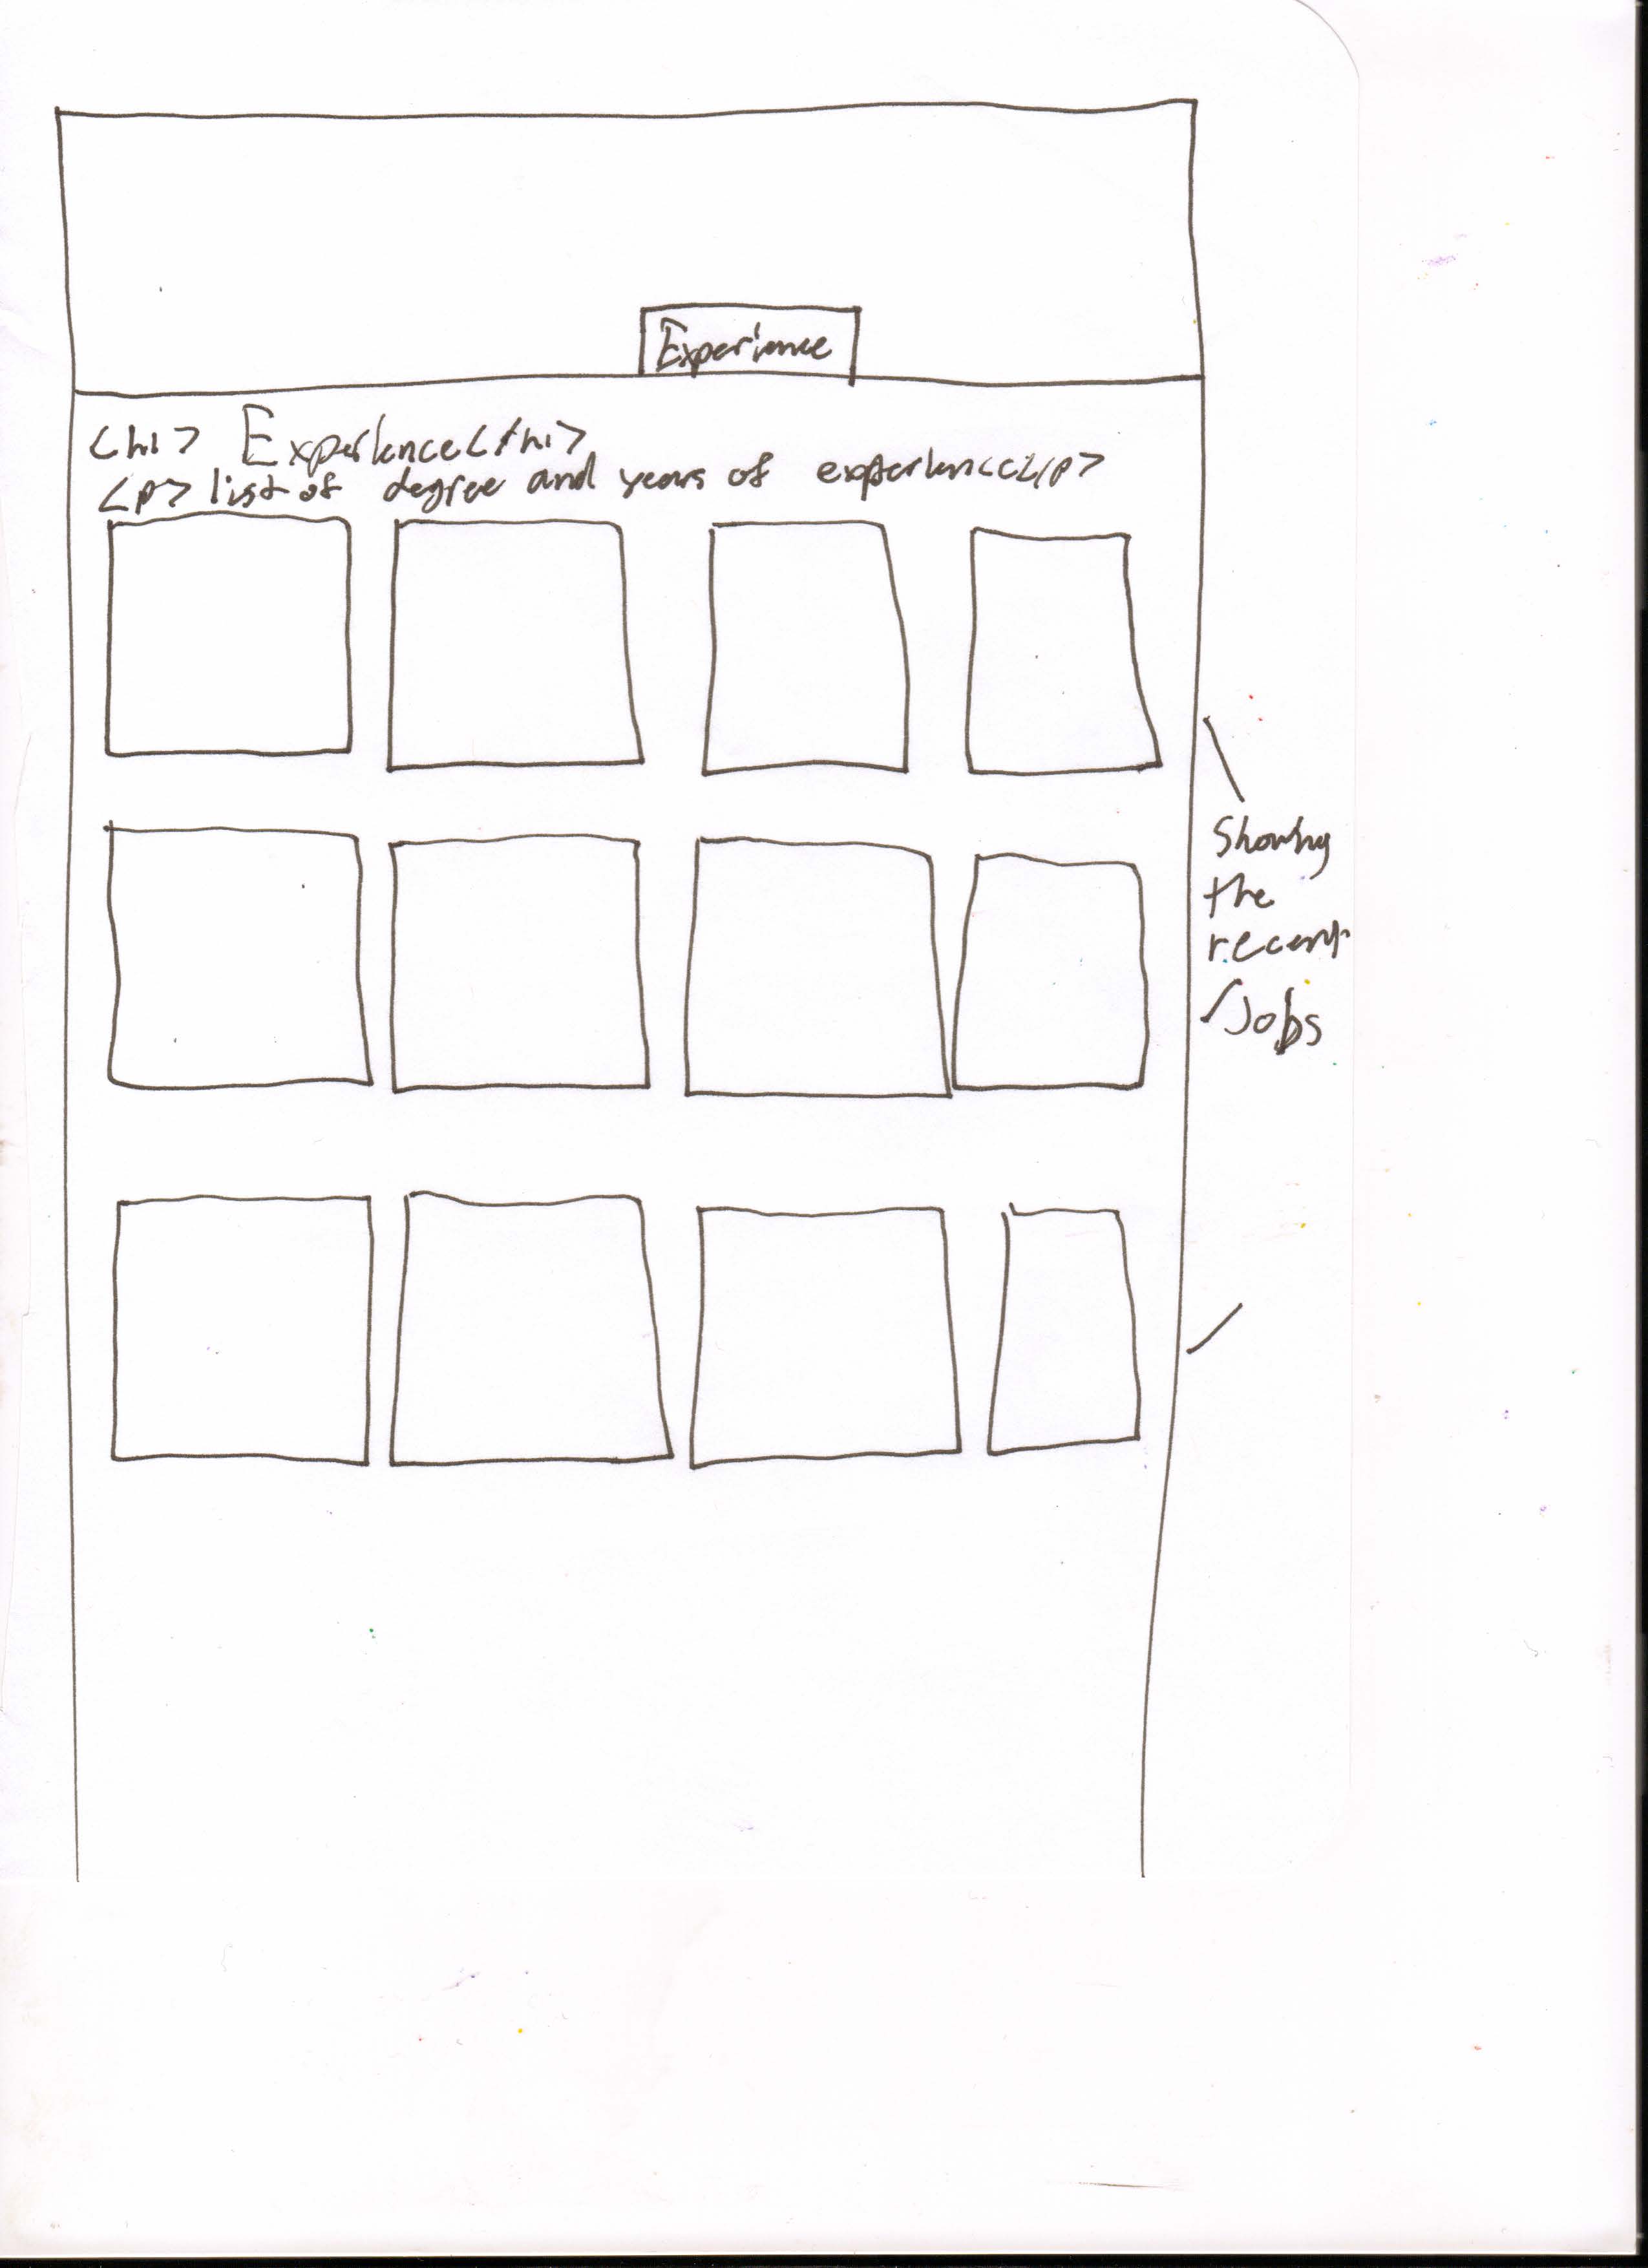 Experience
<h1> Experience</h1>
<p> list of degree and years of experience</p>
Showing
the
recent
Jobs